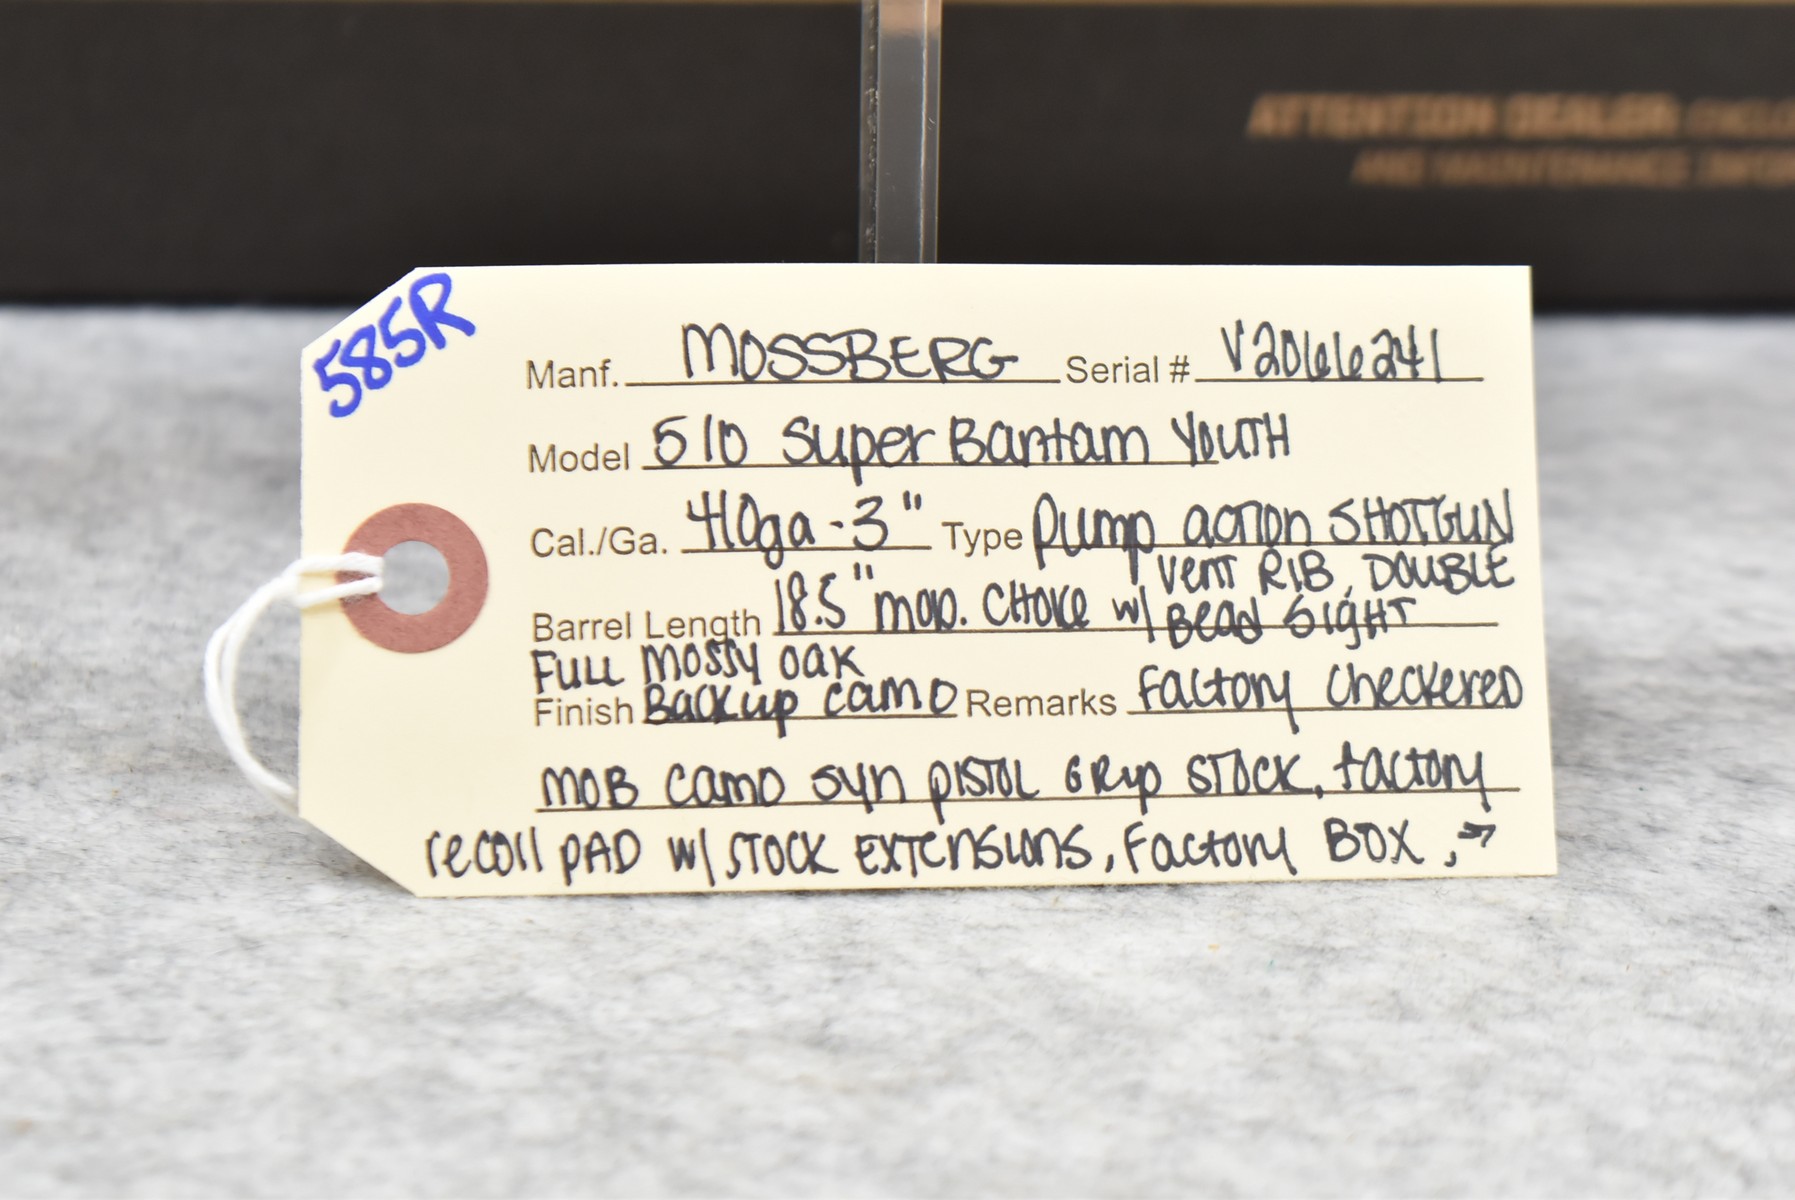 ATTENTION DEALER
AND MAINTENANCE
585R
Manf. MOSSBERG Serial # V2066241
Model 510 Super Bantam YOUTH
Cal./Ga. 410ga - 3" Type Pump action SHOTGUN
Barrel Length 18.5" mod. CHOKE w/ vent RIB, DOUBLE
Bead Sight
Full mossy oak
Finish Backup camo Remarks Factory checkered
MOB camo syn pistol grip stock, factory
recoil pad w/ stock extensions, Factory Box, →